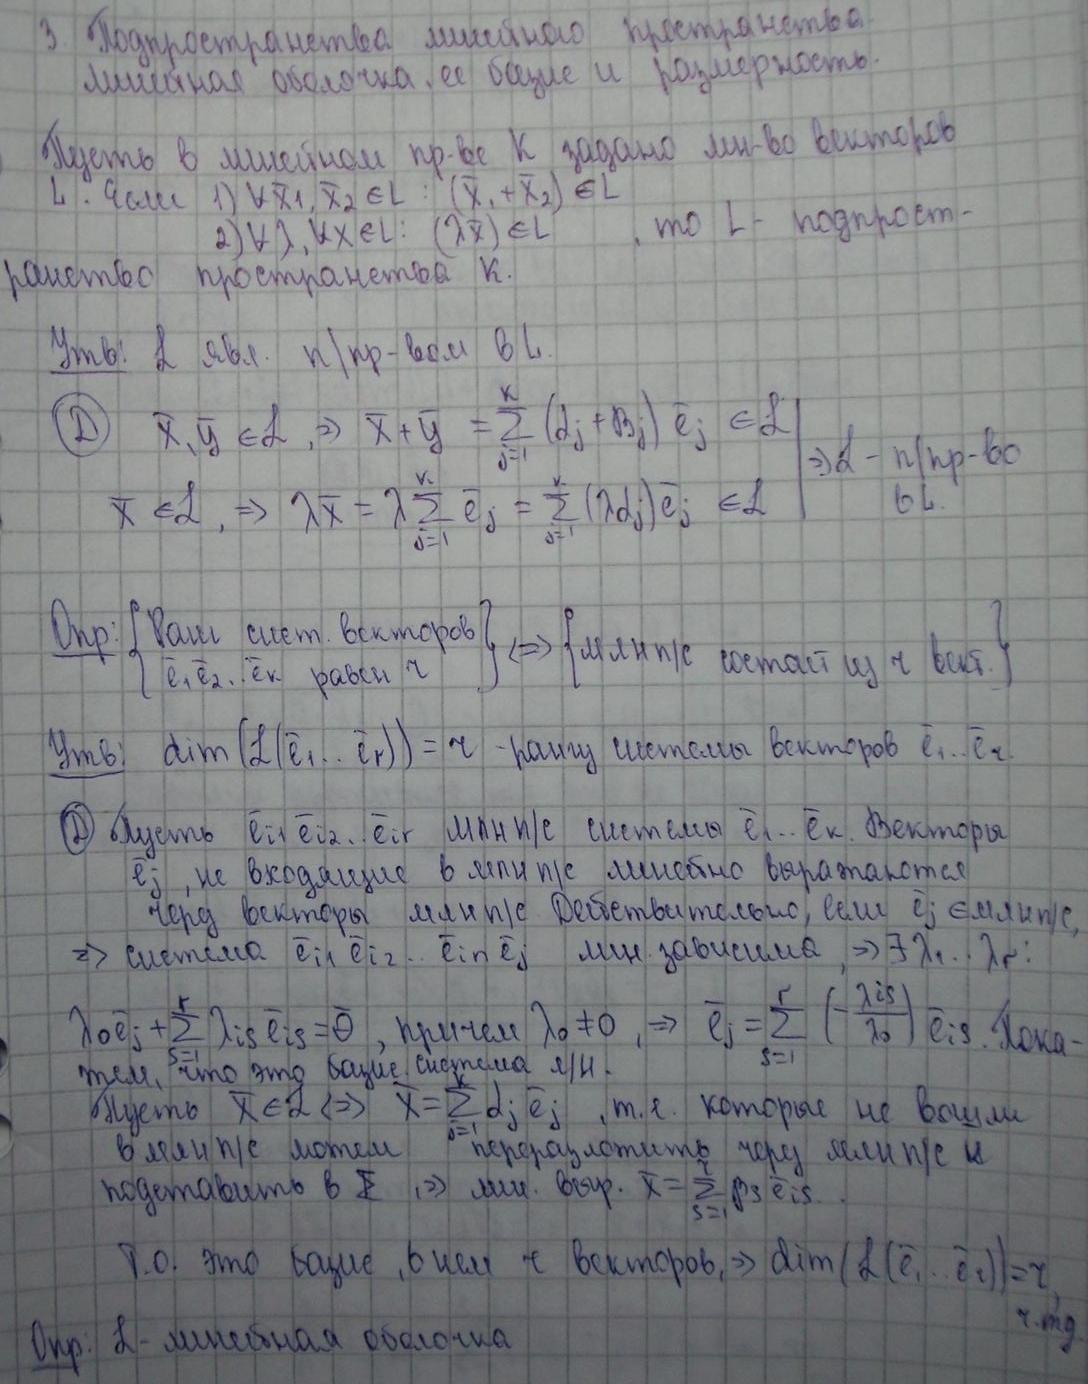 3. Подпространства линейного пространства.
линейная оболочка, ее базис и размерность.
Пусть в линейном пр-ве K задано мн-во векторов
L. Если 1) ∀x̄₁, x̄₂ ∈ L : (x̄₁ + x̄₂) ∈ L
2) ∀λ, ∀x ∈ L : (λx̄) ∈ L , то L - подпрост-
ранство пространства K.
Утв: ℒ явл. п/пр-вом в L.
Ⓓ x̄, ȳ ∈ ℒ, ⇒ x̄ + ȳ = ∑_{j=1}^{K} (α_j + β_j) ē_j ∈ ℒ | ⇒ ℒ - п/пр-во
x̄ ∈ ℒ, ⇒ λx̄ = λ ∑_{j=1}^{K} ē_j = ∑_{j=1}^{K} (λα_j) ē_j ∈ ℒ | в L.
Опр: {Ранг сист. векторов } ⇔ {МЛН п/с состоит из r вект.}
{ē₁ ē₂ .. ē_k равен r}
Утв: dim(ℒ(ē₁ .. ē_r)) = r - рангу системы векторов ē₁ .. ē_r.
Ⓓ Пусть ē_{i1} ē_{i2} .. ē_{ir} МЛН п/с системы ē₁ .. ē_k. Векторы
ē_j, не входящие в МЛН п/с линейно выражаются
через векторы МЛН п/с. Действительно, если ē_j ∈ МЛН п/с,
⇒ система ē_{i1} ē_{i2} .. ē_{in} ē_j лин. зависима, ⇒ ∃ λ₁ .. λ_r :
λ₀ē_j + ∑_{s=1}^{r} λ_{is} ē_{is} = 0̄, причем λ₀ ≠ 0, ⇒ ē_j = ∑_{s=1}^{r} (-λ_{is}/λ₀) ē_{is}. Пока-
жем, что это базис, система л/н.
Пусть x̄ ∈ ℒ ⇔ x̄ = ∑_{j=1}^{K} α_j ē_j, т.е. которые не вошли
в МЛН п/с можем переразложить через МЛН п/с и
подставить в Σ, ⇒ лин. выр. x̄ = ∑_{s=1}^{r} β_s ē_{is}.
Т.О. это базис, в нем r векторов, ⇒ dim(ℒ(ē₁ .. ē_r)) = r,
ч.т.д.
Опр: ℒ - линейная оболочка